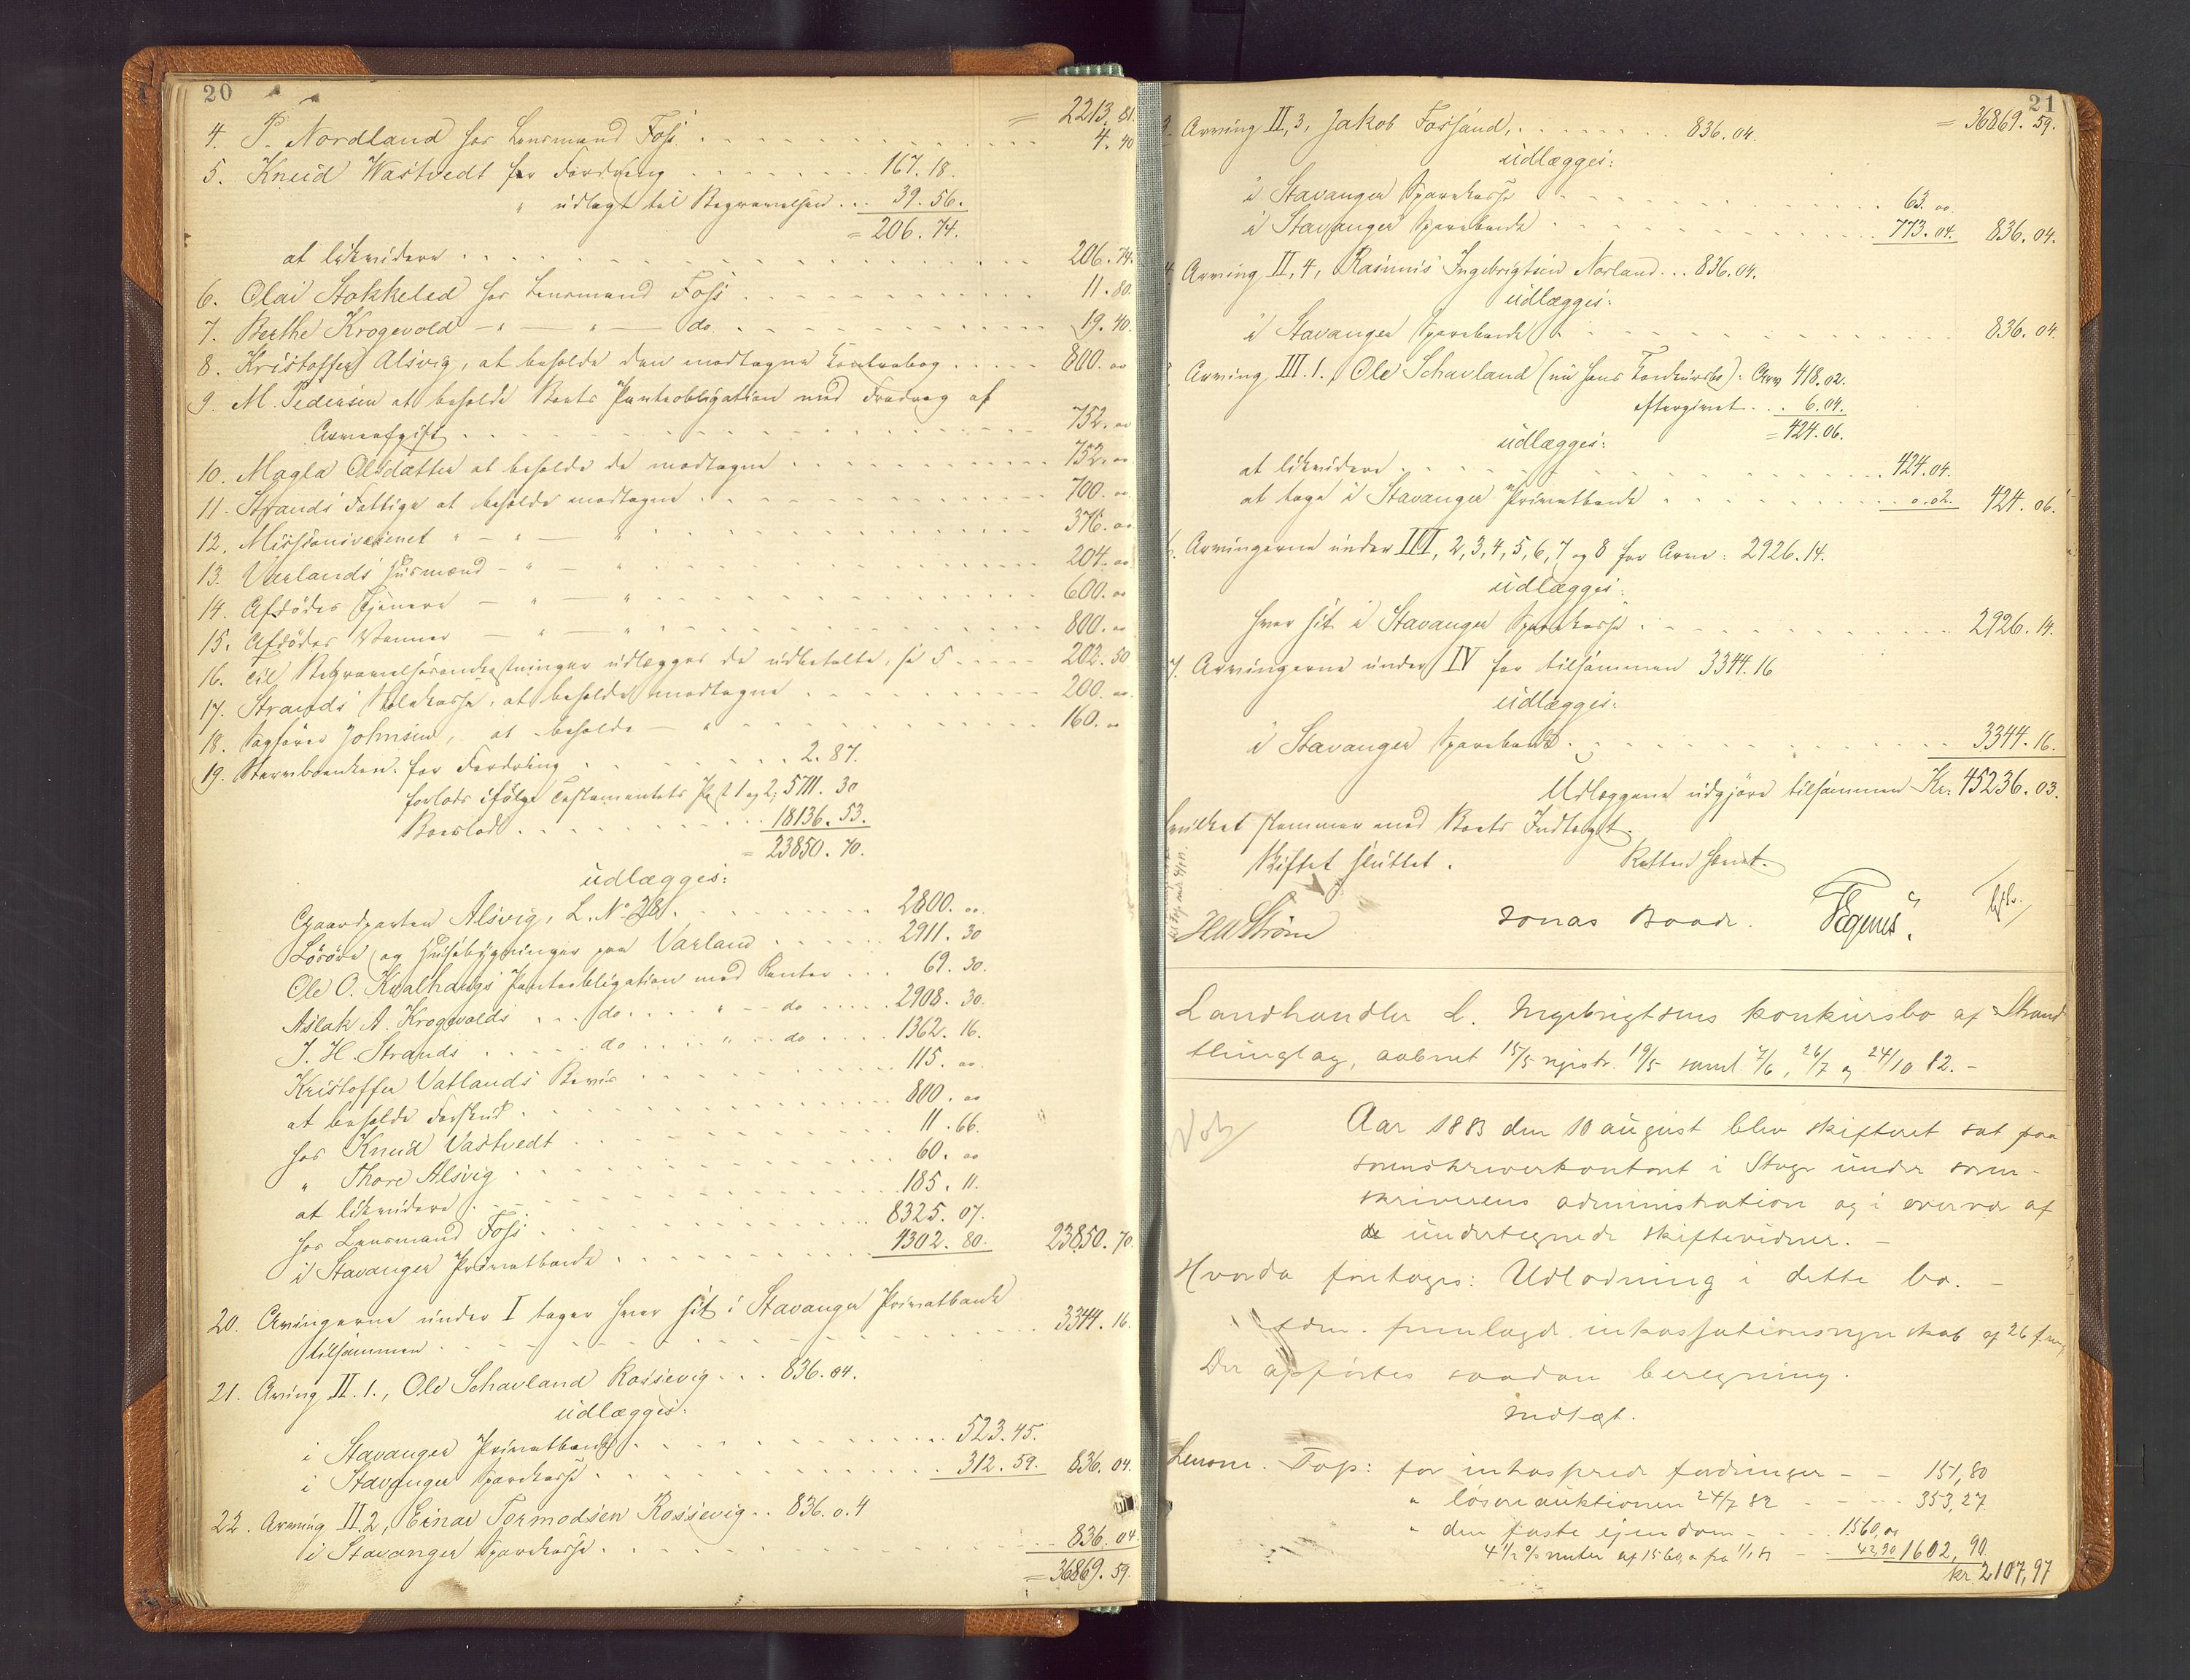 20
= 2213.81.
4. P. Nordland hos Lensmand Foss . . . 4.40
5. Knud Wastvedt for Fordring . . . 167.18.
" udlagt til Begravelsen . . . 39.56.
= 206.74.
at likvidere . . . 206.74.
6. Olai Stokkeled hos Lensmand Foss . . . 11.80.
7. Berthe Krogevold — " — " — do. . . . 19.40.
8. Kristoffer Alsvig, at beholde den modtagne Kontrabog . . . 800.00
9. M. Pedersen at beholde Boets Panteobligation med Fradrag af
Arveafgift . . . 752.00
10. Magla Olsdatter at beholde de modtagne . . . 752.00
11. Strands Fattige at beholde modtagne . . . 700.00.
12. Missionsvæsenet " — " — " . . . 376.00
13. Varlands Husmænd — " — " . . . 204.00
14. Afdødes Tjenere — " — " . . . 600.00
15. Afdødes Venner — " — " . . . 800.00
16. Til Begravelsesomkostninger udlægges de udbetalte, se 5 . . . 202.50
17. Strands Skolekasse, at beholde modtagne . . . 200.00.
18. Sagfører Johnsen, at beholde — " . . . 160.00
19. Stervboenken for Fordring . . . 2.87.
forlods ifølge Testamentets Post 1 og 2, 5711.30
Boeslod . . . 18136.53.
= 23850.70.
udlægges:
Gaardparten Alsvig, L. No 28. . . . 2800.00.
Løsøre og Husebygninger paa Varland . . . 2911.30
Ole O. Kvalhaugs Panteobligation med Renter . . . 69.30.
Aslak A. Krogevolds . . . do. . . " — do . . . 2908.30.
J. H. Strands . . . do . . . " . . do . . . 1362.16.
Kristoffer Vatlands Bevis . . . 115.00.
at beholde Forskud . . . 800.00
hos Knud Vastvedt . . . 11.66.
" Thore Alsvig . . . 60.00
at likvidere . . . 185.11.
hos Lensmand Foss . . . 8325.07.
i Stavanger Privatbank . . . 4302.80. 23850.70.
20. Arvingerne under I tager hver sit i Stavanger Privatbank
tilsammen . . . 3344.16.
21. Arving II.1., Ole Schavland Rossevig . . . 836.04.
udlægges:
i Stavanger Privatbank . . . 523.45.
i Stavanger Sparekasse . . . 312.59. 836.04.
22. Arving II.2, Einar Tormodsen Rossevig . . 836.04
i Stavanger Sparekasse . . . 836.04.
= 36869.59.
21
= 36869.59.
Arving II,3, Jakob Fossand, . . . 836.04.
udlægges:
i Stavanger Sparekasse . . . 63.00.
i Stavanger Sparebank . . . 773.04. 836.04.
Arving II,4, Rasmus Ingebrigtsen Norland . . . 836.04.
udlægges:
i Stavanger Sparebank . . . 836.04.
Arving III.1., Ole Schavland (nu hans Konkursbo): Arv 418.02.
eftergivet . . . 6.04.
= 424.06.
udlægges:
at likvidere . . . 424.04.
at tage i Stavanger Privatbank . . . 0.02. 424.06.
Arvingerne under III, 2, 3, 4, 5, 6, 7 og 8 for Arve: 2926.14.
udlægges:
hver sit i Stavanger Sparekasse . . . 2926.14.
7. Arvingerne under IV for tilsammen 3344.16
udlægges:
i Stavanger Sparebank . . . 3344.16.
Udlæggene udgjøre tilsammen Kr. 45236.03.
hvilket stemmer med Boets Indtægt.
Skiftet sluttet. Retten hævet.
Jonas Boade.
Landhandler L. Ingebrigtsens konkursbo af Strand
thinglag, aabnet 15/5 registr. 19/5 saml. 7/6, 26/7 og 24/10 82. —
Aar 1883 den 10 august blev skifteret sat paa
sorenskriverkontoret i Stage under soren-
skriverens administration og i overvær af
de undertegnede skiftevidner. —
Hvorda foretoges: Udlodning i dette bo. —
Adm. fremlagde inkassationsregnskab af 26 f.m.
Der opførtes saadan beregning.
Indtægt.
Lensm. Foss: for inkasserede fordringer — — 151,80
" løsøreauktionen 24/7 82 . — . . . 353,27
" den faste eiendom — . . 1560,00
4 1/2 % renter af 1560,0 fra 1/1 83 — . . 42,90 1602,90
kr. 2107,97